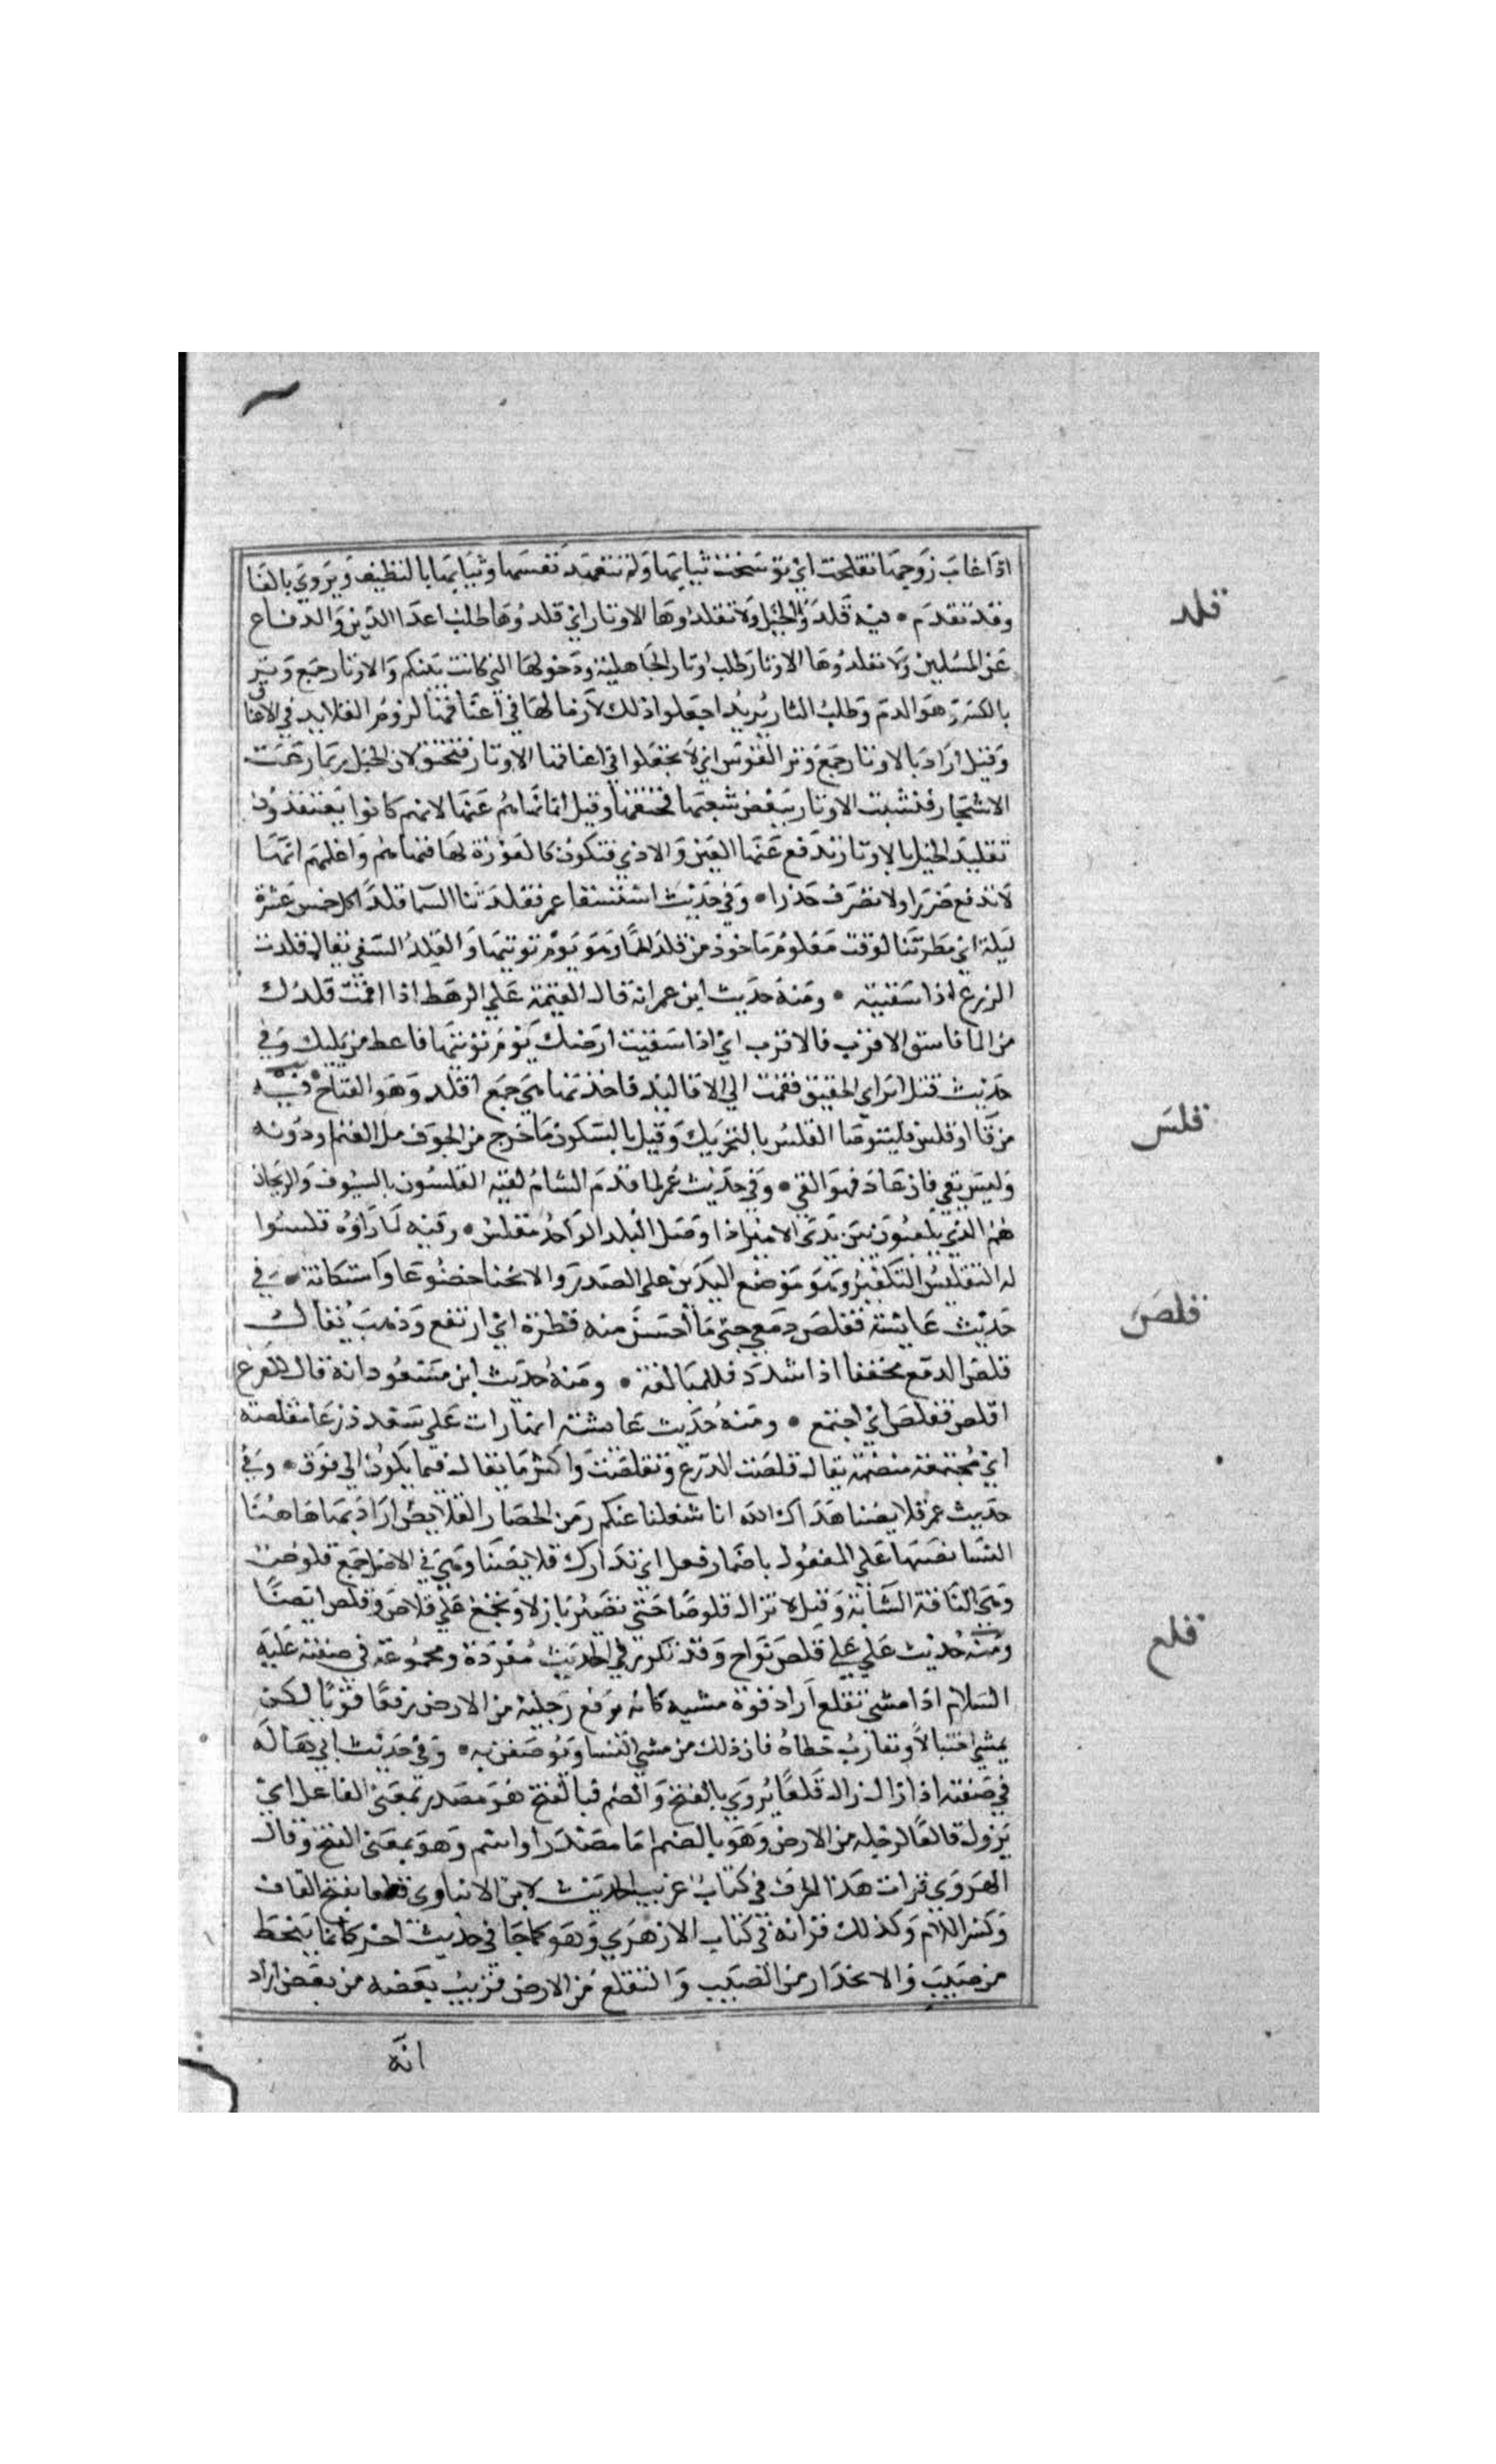 اذا غاب زوجها تقلحت اي توسخت ثيابها ولم تتعهد نفسها وثيابها بالتنظيف ويروي بالفا
قلد
وقد تقدم • فيه قلدوا الخيل ولا تقلدوها الاوتار اي قلدوها طلب اعدا الدين والدفاع
عن المسلمين ولا تقلدوها الاوتار طلب اوتار الجاهلية ودخولها التي كانت بينكم والاوتار جمع وتر
بالكسر وهو الدم وطلب الثار يريد اجعلوا ذلك لازما لها في اعناقها لزوم القلايد في الاعناق
وقيل اراد بالاوتار جمع وتر القوس اي لا تجعلوا في اعناقها الاوتار فتختنق لان الخيل ربما رعت
الاشجار فنشبت الاوتار ببعض شعبها فخنقتها وقيل انما نهاهم عنها لانهم كانوا يعتقدون
تقليد الخيل بالاوتار تدفع عنها العين والاذي فتكون كالعوذة لها فنهاهم واعلمهم انها
لا تدفع ضررا ولا تصرف حذرا • وفي حديث استسقا عمر فقلدتنا السما قلدا كل خمس عشرة
ليلة اي مطرتنا لوقت معلوم ماخوذ من قلد الحما وهو يوم نوبتها والقلد السقي يقال قلدت
الزرع اذا سقيته • ومنه حديث ابن عمر انه قال لقيمه علي الرهط اذا اقمت قلدك
من الما فاسق الاقرب فالاقرب اي اذا سقيت ارضك يوم نوبتها فاعط من يليك وفي
حديث قتل ابن ابي الحقيق فقمت الي الاقاليد فاخذتها هي جمع اقلد وهو المفتاح • فيه
قلس
من قا او قلس فليتوضا القلس بالتحريك وقيل بالسكون ما خرج من الجوف مل الفم او دونه
وليس بقي فان عاد فهو القي • وفي حديث عمر لما قدم الشام لقيه المقلسون بالسيوف والريحان
هم الذي يلعبون بين يدي الامير اذا وصل البلد الواحد مقلس • وفيه لما راوه قلسوا
له التقليس التكفير وهو وضع اليدين علي الصدر والانحنا خضوعا واستكانة • في
قلص
حديث عايشة فقلص دمعي حتي ما احس منه قطرة اي ارتفع وذهب يقال
قلص الدمع مخففا اذا شدد فللمبالغة • ومنه حديث ابن مسعود انه قال للضرع
اقلص فقلص اي اجتمع • ومنه حديث عايشة انها رات علي سعد درعا مقلصة
اي مجتمعة منضمة يقال قلصت الدرع وتقلصت واكثر ما يقال فيما يكون الي فوق • وفي
حديث عمر قلايصنا هداك الله انا شغلنا عنكم زمن الحصار القلايص اراد بها هاهنا
النسا نصبها علي المفعول باضمار فعل اي تدارك قلايصنا وهي في الاصل جمع قلوص
وهي الناقة الشابة وقيل لا تزال قلوصا حتي تصير بازلا وتجمع علي قلاص وقلص ايضا
ومنه حديث علي علي قلص نواج وقد تكرر في الحديث مفردة ومجموعة في صفته عليه
قلع
السلام اذا مشي تقلع اراد قوة مشيه كانه يرفع رجليه من الارض رفعا قويا لا كمن
يمشي اختيالا وتقارب خطاه فان ذلك من مشي النسا ويوصفن به • وفي حديث ابي هالة
في صفته اذا زال زال قلعا يروي بالفتح والضم فبالفتح هو مصدر بمعني الفاعل اي
يزول قالعا لرجله من الارض وهو بالضم اما مصدر او اسم وهو بمعني الفتح وقال
الهروي قرات هذا الحرف في كتاب غريب الحديث لابن الانباري قلعا بفتح القاف
وكسر اللام وكذلك قراته في كتاب الازهري وهو كما جا في حديث اخر كانما ينحط
من صبب والانحدار من الصبب والتقلع من الارض قريب بعضه من بعض اراد
انه